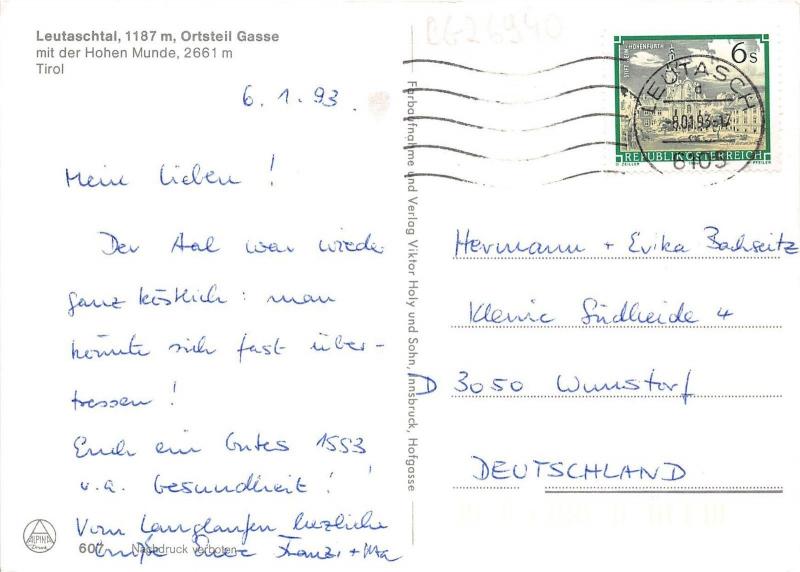 Leutaschtal, 1187 m, Ortsteil Gasse
mit der Hohen Munde, 2661 m
Tirol
6.1.93.
Meine Lieben!
Der Aal war wieder
ganz köstlich: man
könnte sich fast über-
fressen!
Euch ein Gutes 1993
v.a. Gesundheit!
Vom Langlaufen herzliche
Grüße Eure Franzi +
607 Nachdruck verboten
ALPINA
Druck
Farbaufnahme und Verlag Viktor Holy und Sohn, Innsbruck, Hofgasse
CG-26940
STIFT REIN-HOHENFURTH
6s
REPUBLIK ÖSTERREICH
O. ZEILER
PFEILER
LEUTASCH
a
-8.01.93-17
6105
Hermann + Erika Bachseitz
Kleine Südheide 4
D 3050 Wunstorf
DEUTSCHLAND